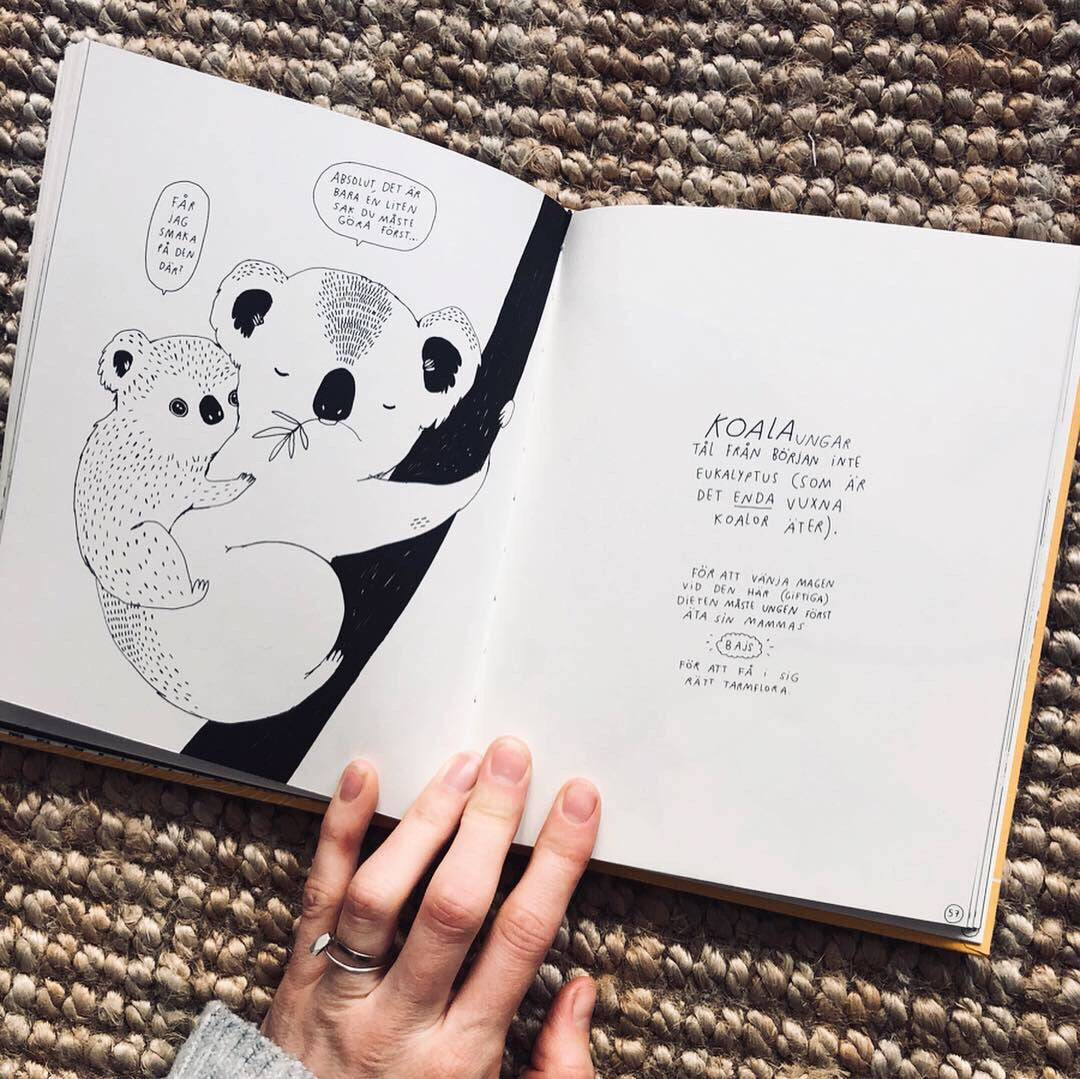 FÅR
JAG
SMAKA
PÅ DEN
DÄR?
ABSOLUT, DET ÄR
BARA EN LITEN
SAK DU MÅSTE
GÖRA FÖRST...
KOALAUNGAR
TÅL FRÅN BÖRJAN INTE
EUKALYPTUS (SOM ÄR
DET ENDA VUXNA
KOALOR ÄTER).
FÖR ATT VÄNJA MAGEN
VID DEN HÄR (GIFTIGA)
DIETEN MÅSTE UNGEN FÖRST
ÄTA SIN MAMMAS
BAJS
FÖR ATT FÅ I SIG
RÄTT TARMFLORA.
57